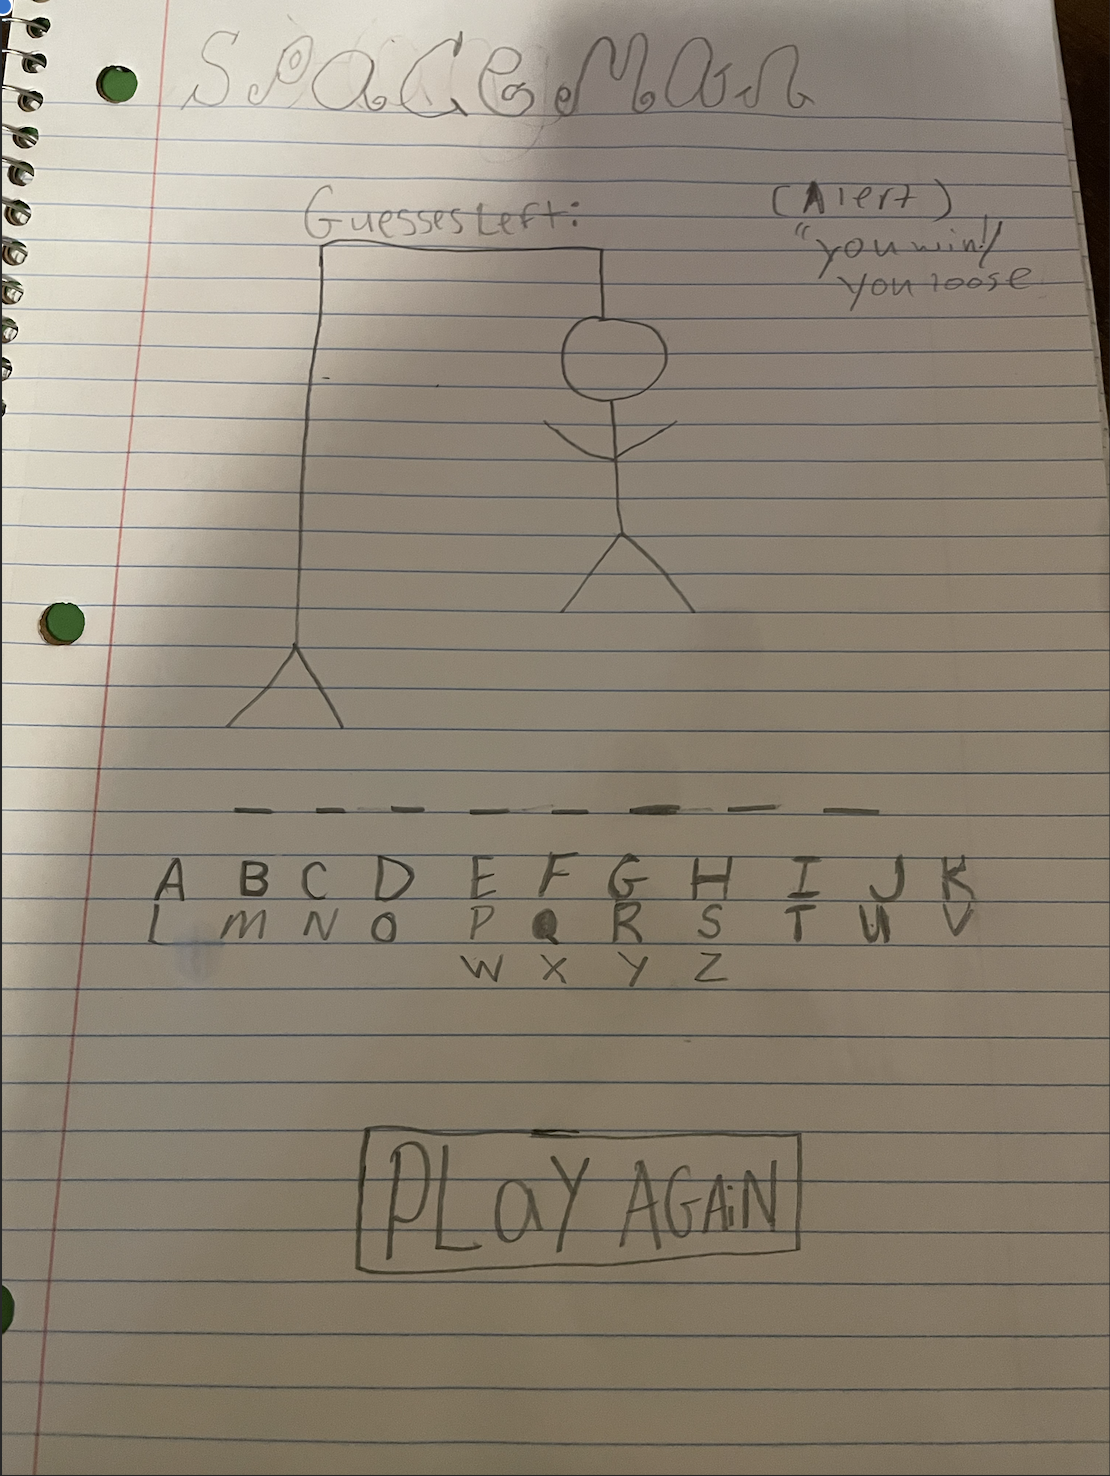 SPaCeMan
Guesses Left:
(Alert)
"you win!/
you loose
A B C D E F G H I J K
L M N O P Q R S T U V
W X Y Z
PLaY AGAiN